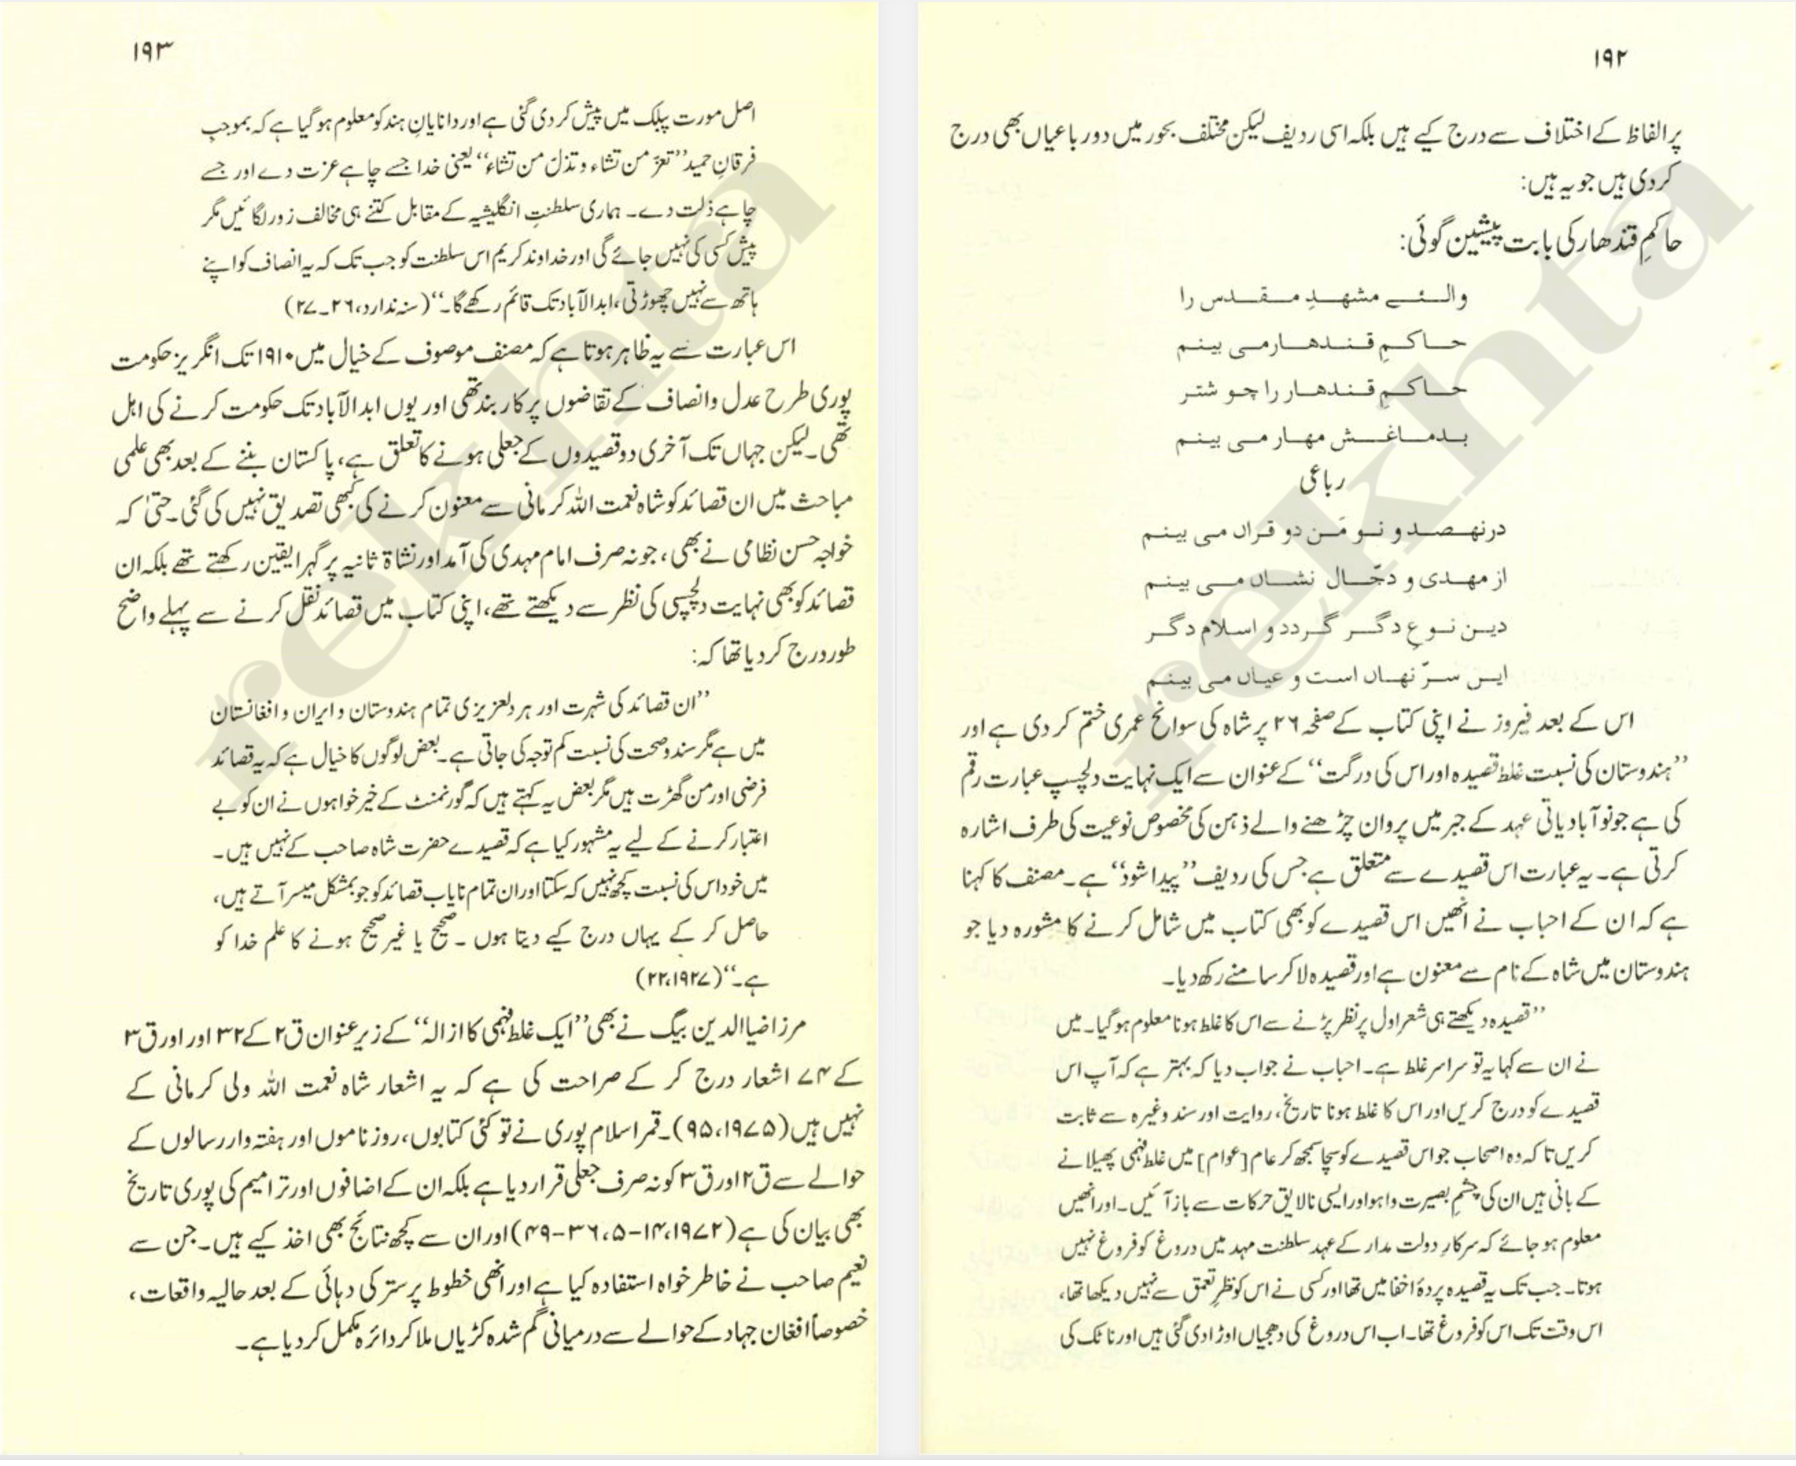 ۱۹۲
پر الفاظ کے اختلاف سے درج کیے ہیں بلکہ اسی ردیف لیکن مختلف بحور میں دو رباعیاں بھی درج
کر دی ہیں جو یہ ہیں:
حاکمِ قندھار کی بابت پیشین گوئی:
والئے مشہدِ مقدس را
حاکمِ قندھار می بینم
حاکمِ قندھار را چو شتر
بدماغش مهار می بینم
رباعی
در نهصد و نو مَن دو قراں می بینم
از مهدی و دجّال نشاں می بینم
دین نوعِ دگر گردد و اسلام دگر
ایں سرّ نهاں است و عیاں می بینم
اس کے بعد فیروز نے اپنی کتاب کے صفحہ ۲۶ پر شاہ کی سوانح عمری ختم کر دی ہے اور
’’ہندوستان کی نسبت غلط قصیدہ اور اس کی درگت‘‘ کے عنوان سے ایک نہایت دلچسپ عبارت رقم
کی ہے جو نو آبادیاتی عہد کے جبر میں پروان چڑھنے والے ذہن کی مخصوص نوعیت کی طرف اشارہ
کرتی ہے۔ یہ عبارت اس قصیدے سے متعلق ہے جس کی ردیف ’’پیدا شود‘‘ ہے۔ مصنف کا کہنا
ہے کہ ان کے احباب نے انھیں اس قصیدے کو بھی کتاب میں شامل کرنے کا مشورہ دیا جو
ہندوستان میں شاہ کے نام سے معنون ہے اور قصیدہ لا کر سامنے رکھ دیا۔
’’قصیدہ دیکھتے ہی شعر اول پر نظر پڑنے سے اس کا غلط ہونا معلوم ہو گیا۔ میں
نے ان سے کہا یہ تو سراسر غلط ہے۔ احباب نے جواب دیا کہ بہتر ہے کہ آپ اس
قصیدے کو درج کریں اور اس کا غلط ہونا تاریخ، روایت اور سند وغیرہ سے ثابت
کریں تا کہ وہ اصحاب جو اس قصیدے کو سچا سمجھ کر عام [عوام] میں غلط فہمی پھیلانے
کے بانی ہیں ان کی چشمِ بصیرت وا ہو اور ایسی نالایق حرکات سے باز آئیں۔ اور انھیں
معلوم ہو جائے کہ سرکارِ دولت مدار کے عہد سلطنت مہد میں دروغ کو فروغ نہیں
ہوتا۔ جب تک یہ قصیدہ پردۂ اخفا میں تھا اور کسی نے اس کو نظرِ تعمق سے نہیں دیکھا تھا،
اس وقت تک اس کو فروغ تھا۔ اب اس دروغ کی دھجیاں اوڑا دی گئی ہیں اور ناٹک کی
۱۹۳
اصل مورت پبلک میں پیش کر دی گئی ہے اور دانایانِ ہند کو معلوم ہو گیا ہے کہ بموجبِ
فرقانِ حمید ’’تعزّ من تشاء و تذلّ من تشاء‘‘ یعنی خدا جسے چاہے عزت دے اور جسے
چاہے ذلت دے۔ ہماری سلطنتِ انگلیشیہ کے مقابل کتنے ہی مخالف زور لگائیں مگر
پیش کسی کی نہیں جائے گی اور خداوند کریم اس سلطنت کو جب تک کہ یہ انصاف کو اپنے
ہاتھ سے نہیں چھوڑتی، ابد الآباد تک قائم رکھے گا۔‘‘ (سنہ ندارد، ۲۶۔۲۷)
اس عبارت سے یہ ظاہر ہوتا ہے کہ مصنف موصوف کے خیال میں ۱۹۱۰ تک انگریز حکومت
پوری طرح عدل و انصاف کے تقاضوں پر کاربند تھی اور یوں ابد الآباد تک حکومت کرنے کی اہل
تھی۔ لیکن جہاں تک آخری دو قصیدوں کے جعلی ہونے کا تعلق ہے، پاکستان بننے کے بعد بھی علمی
مباحث میں ان قصائد کو شاہ نعمت اللہ کرمانی سے معنون کرنے کی کبھی تصدیق نہیں کی گئی۔ حتیٰ کہ
خواجہ حسن نظامی نے بھی، جو نہ صرف امام مہدی کی آمد اور نشاۃ ثانیہ پر گہرا یقین رکھتے تھے بلکہ ان
قصائد کو بھی نہایت دلچسپی کی نظر سے دیکھتے تھے، اپنی کتاب میں قصائد نقل کرنے سے پہلے واضح
طور درج کر دیا تھا کہ:
’’ان قصائد کی شہرت اور ہر دلعزیزی تمام ہندوستان و ایران و افغانستان
میں ہے مگر سند و صحت کی نسبت کم توجہ کی جاتی ہے۔ بعض لوگوں کا خیال ہے کہ یہ قصائد
فرضی اور من گھڑت ہیں مگر بعض یہ کہتے ہیں کہ گورنمنٹ کے خیر خواہوں نے ان کو بے
اعتبار کرنے کے لیے یہ مشہور کیا ہے کہ قصیدے حضرت شاہ صاحب کے نہیں ہیں۔
میں خود اس کی نسبت کچھ نہیں کہ سکتا اور ان تمام نایاب قصائد کو جو بمشکل میسر آتے ہیں،
حاصل کر کے یہاں درج کیے دیتا ہوں۔ صحیح یا غیر صحیح ہونے کا علم خدا کو
ہے۔‘‘ (۱۹۲۷، ۲۲)
مرزا ضیا الدین بیگ نے بھی ’’ایک غلط فہمی کا ازالہ‘‘ کے زیرِ عنوان ق۲ کے ۳۲ اور اور ق۳
کے ۷۴ اشعار درج کر کے صراحت کی ہے کہ یہ اشعار شاہ نعمت اللہ ولی کرمانی کے
نہیں ہیں (۱۹۷۵، ۹۵)۔ قمر اسلام پوری نے تو کئی کتابوں، روزناموں اور ہفتہ وار رسالوں کے
حوالے سے ق۲ اور ق۳ کو نہ صرف جعلی قرار دیا ہے بلکہ ان کے اضافوں اور ترامیم کی پوری تاریخ
بھی بیان کی ہے (۱۹۷۲، ۱۴-۵، ۳۶-۴۹) اور ان سے کچھ نتائج بھی اخذ کیے ہیں۔ جن سے
نعیم صاحب نے خاطر خواہ استفادہ کیا ہے اور انھی خطوط پر ستر کی دہائی کے بعد حالیہ واقعات،
خصوصاً افغان جہاد کے حوالے سے درمیانی گم شدہ کڑیاں ملا کر دائرہ مکمل کر دیا ہے۔
rekhta
rekhta